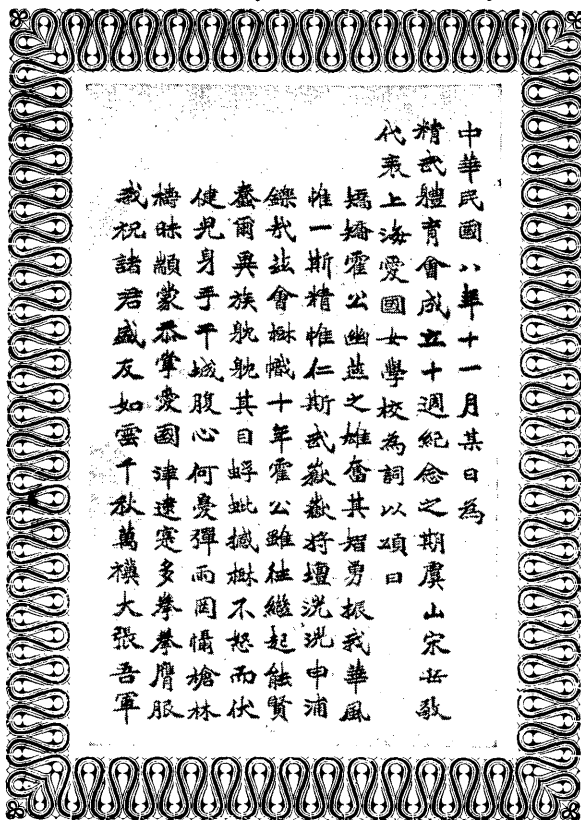 中華民國八年十一月某日為
精武體育會成立十週紀念之期虞山宋某敬
代表上海愛國女學校為詞以頌曰
矯矯霍公幽燕之雄奮其智勇振我華風
惟一斯精惟仁斯武嶽嶽將壇洸洸申浦
鑠哉茲會樹幟十年霍公雖往繼起能賢
蠢爾異族眈眈其目蜉蚍撼樹不怒而伏
健兒身手干城腹心何憂彈雨罔懾槍林
檮昧顓蒙忝掌愛國津逮寔多拳拳膺服
我祝諸君盛友如雲千秋萬禩大張吾軍